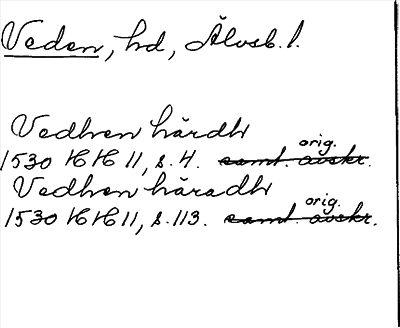 Veden, hd, Älvsb. l.
Vedhen härdh
orig.
1530 HH 11, s. 4. samt. avskr.
Vedhen häradh
orig.
1530 HH 11, s. 113. samt. avskr.